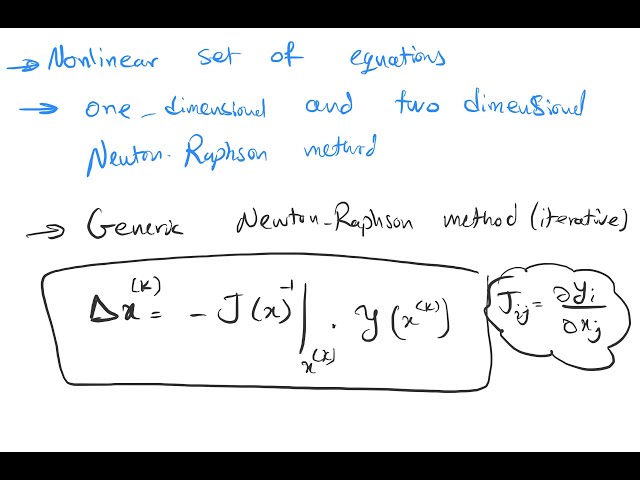 → Nonlinear set of equations
→ one-dimensional and two dimensional
Newton-Raphson method
→ Generic Newton-Raphson method (iterative)
Δx^(k) = - J(x)^-1 |_x^(k) . y(x^(k))
J_ij = ∂y_i / ∂x_j